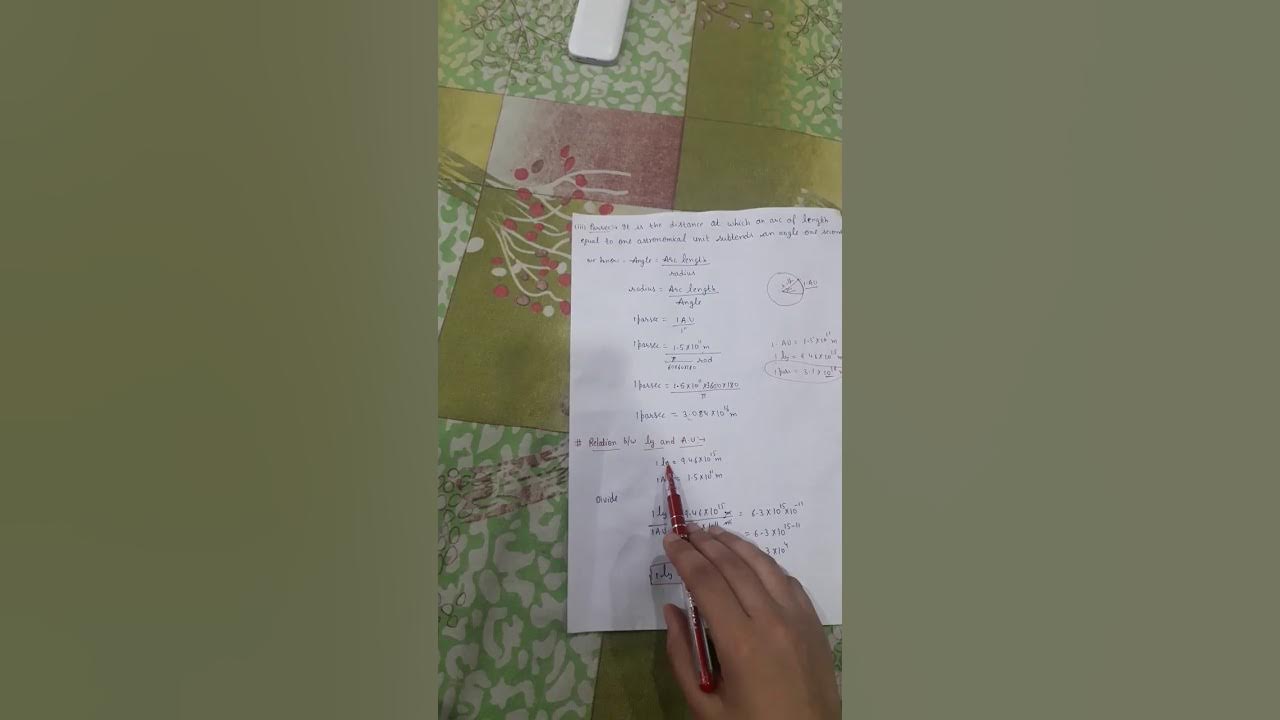 (iii) Parsec → It is the distance at which an arc of length
equal to one astronomical unit subtends an angle one secon
we know - Angle = Arc length
radius
radius = Arc length
Angle
1 parsec = 1 A.U
1"
1 parsec = 1.5×10¹¹ m
π rad
60×60×180
1 parsec = 1.5×10¹¹×3600×180
π
1 parsec = 3.084×10¹⁶ m
1 AU
1 AU = 1.5×10¹¹ m
1 ly = 9.46×10¹⁵ m
1 par = 3.1×10¹⁶ m
# Relation b/w ly and A.U →
1 ly = 9.46×10¹⁵ m
1 A = 1.5×10¹¹ m
Divide
1 ly 9.46×10¹⁵ m = 6.3×10¹⁵×10⁻¹¹
1 A.U ×10¹¹ m = 6.3×10¹⁵⁻¹¹
3×10⁴
1 ly